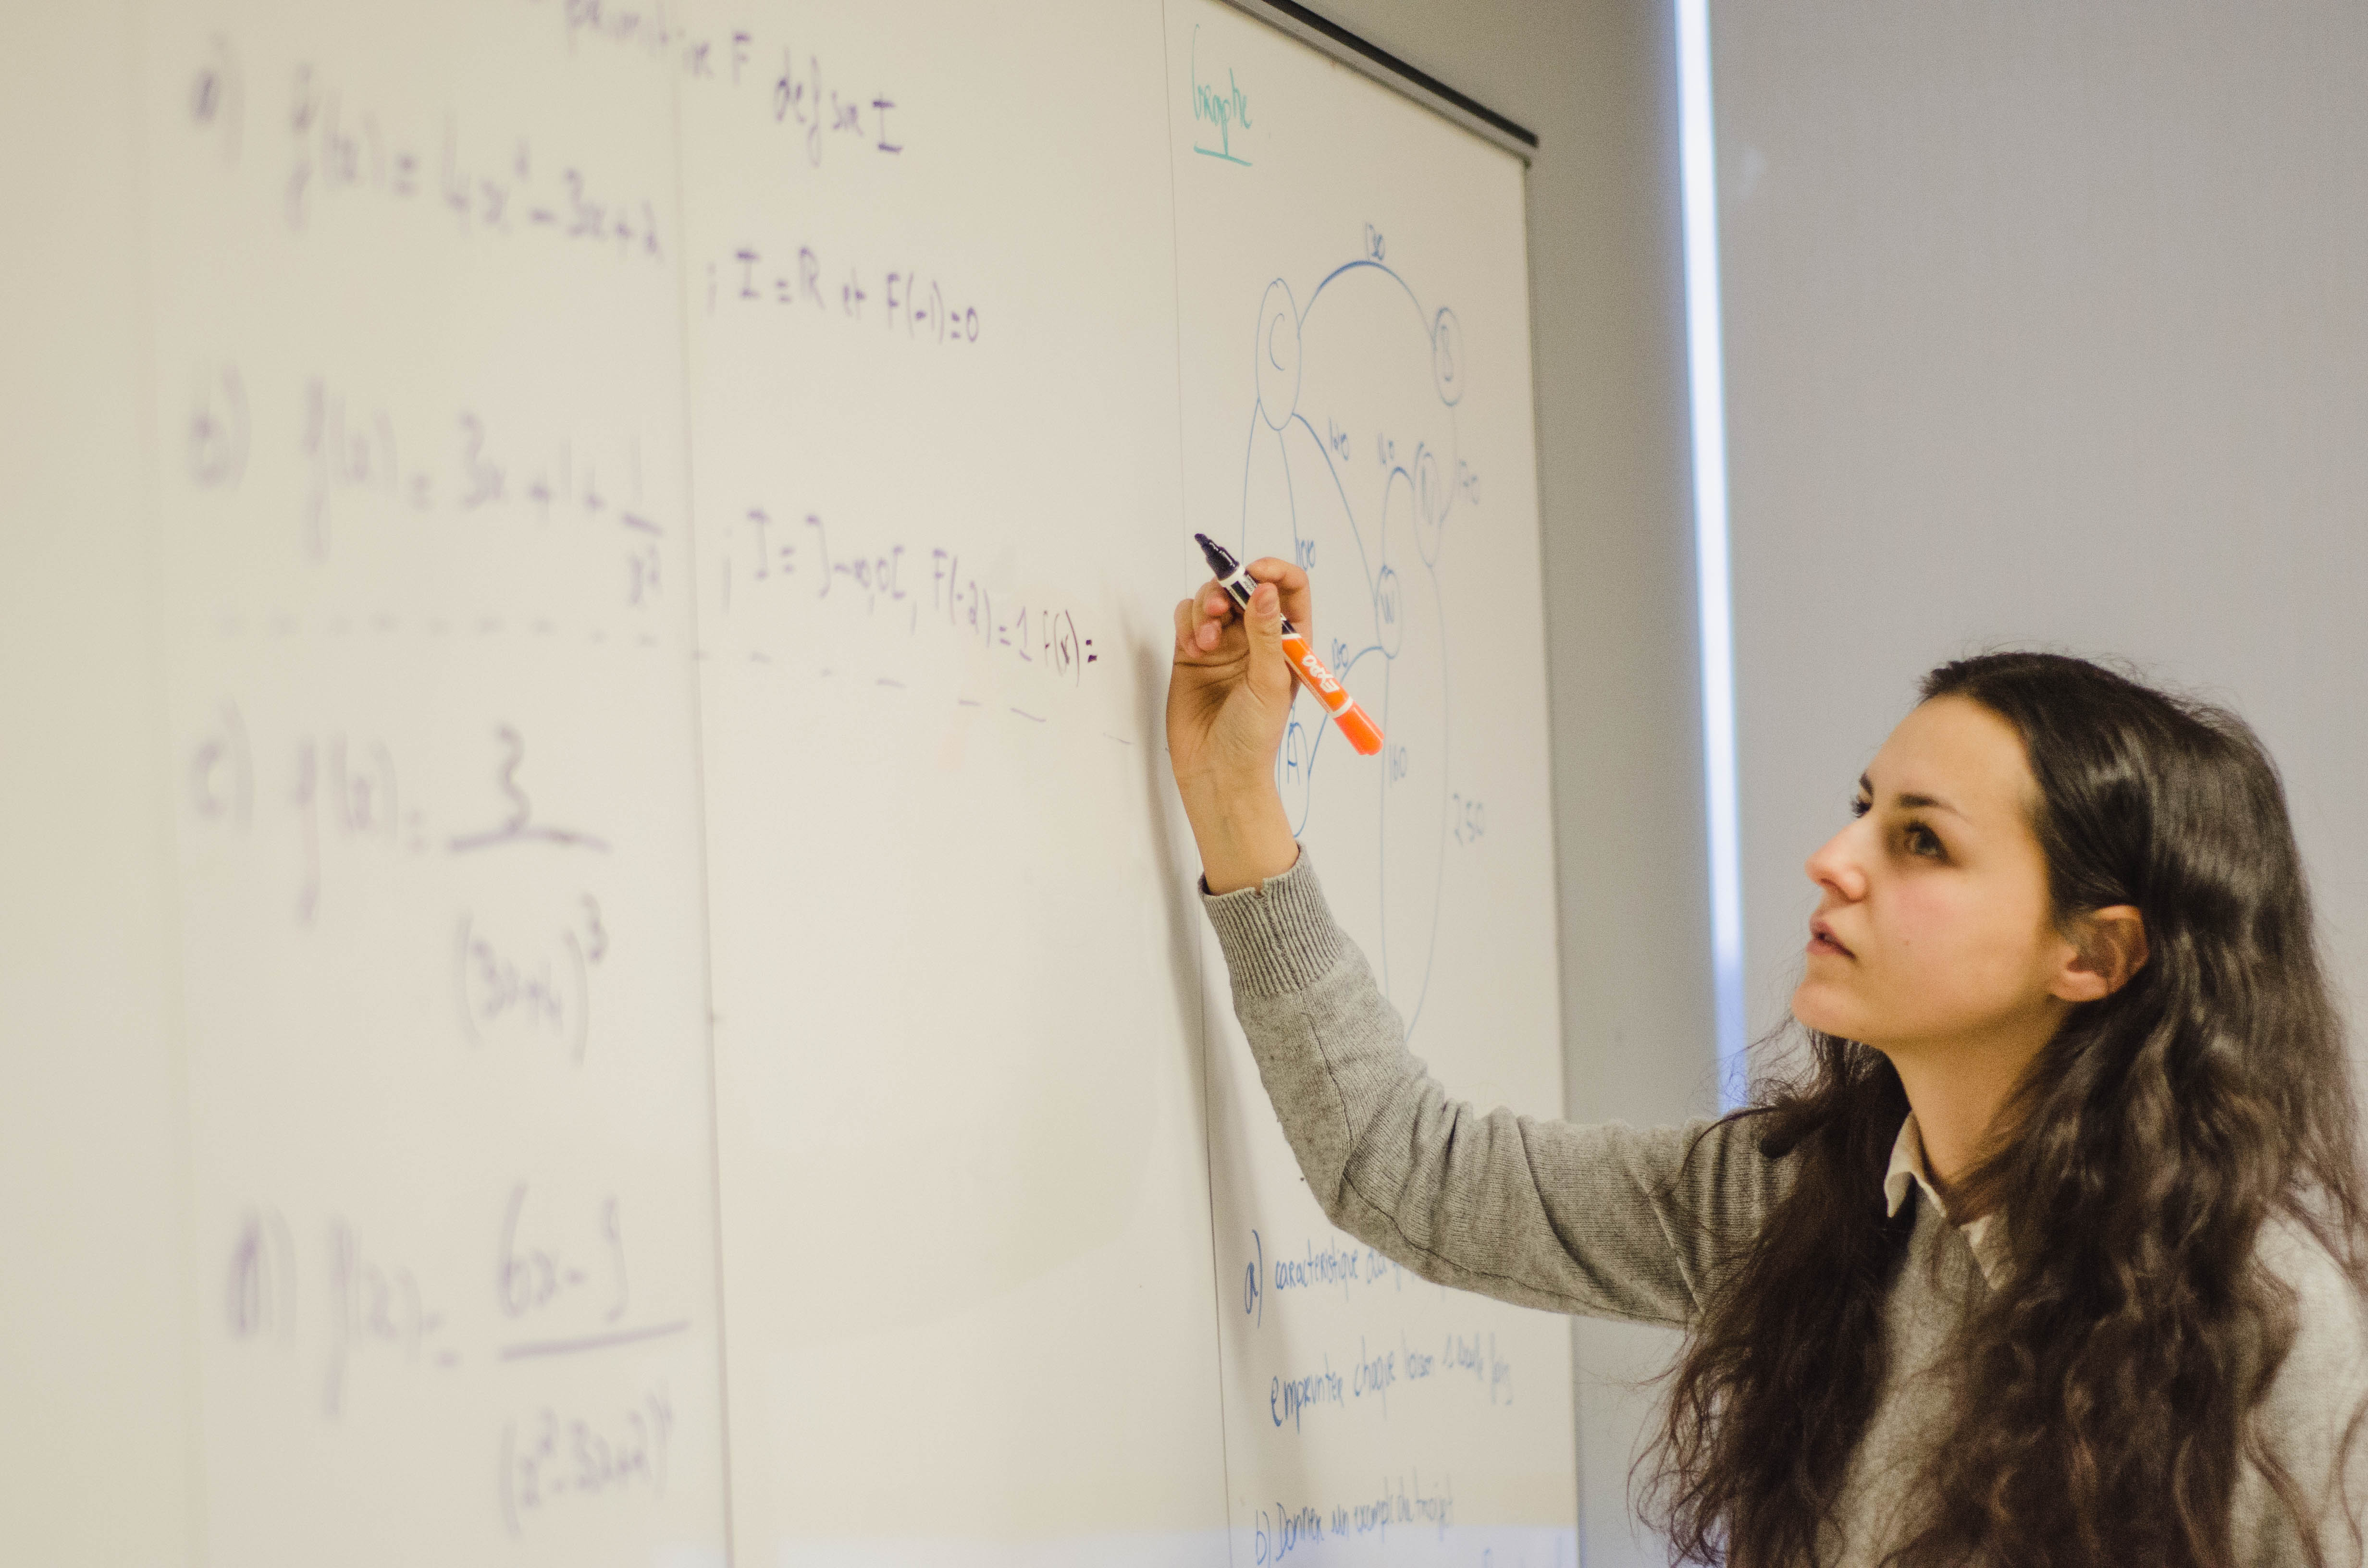 primitive F def sur I
a) f(x) = 4x⁴ - 3x + 2 ; I = ℝ et F(-1)=0
b) f(x) = 3x + 1 + 1/x² ; I = ]-∞,0[, F(-2)=1 F(x)=
c) f(x) = 3/(3x+4)³
d) f(x) = /(x²-3x+2)
Graphe
130
C
S
140
170
100
W
130
EXPO
A
160
250
a) caractéristique
emprunter chaque 1 seule fois
b) Donner un exempl de trajet